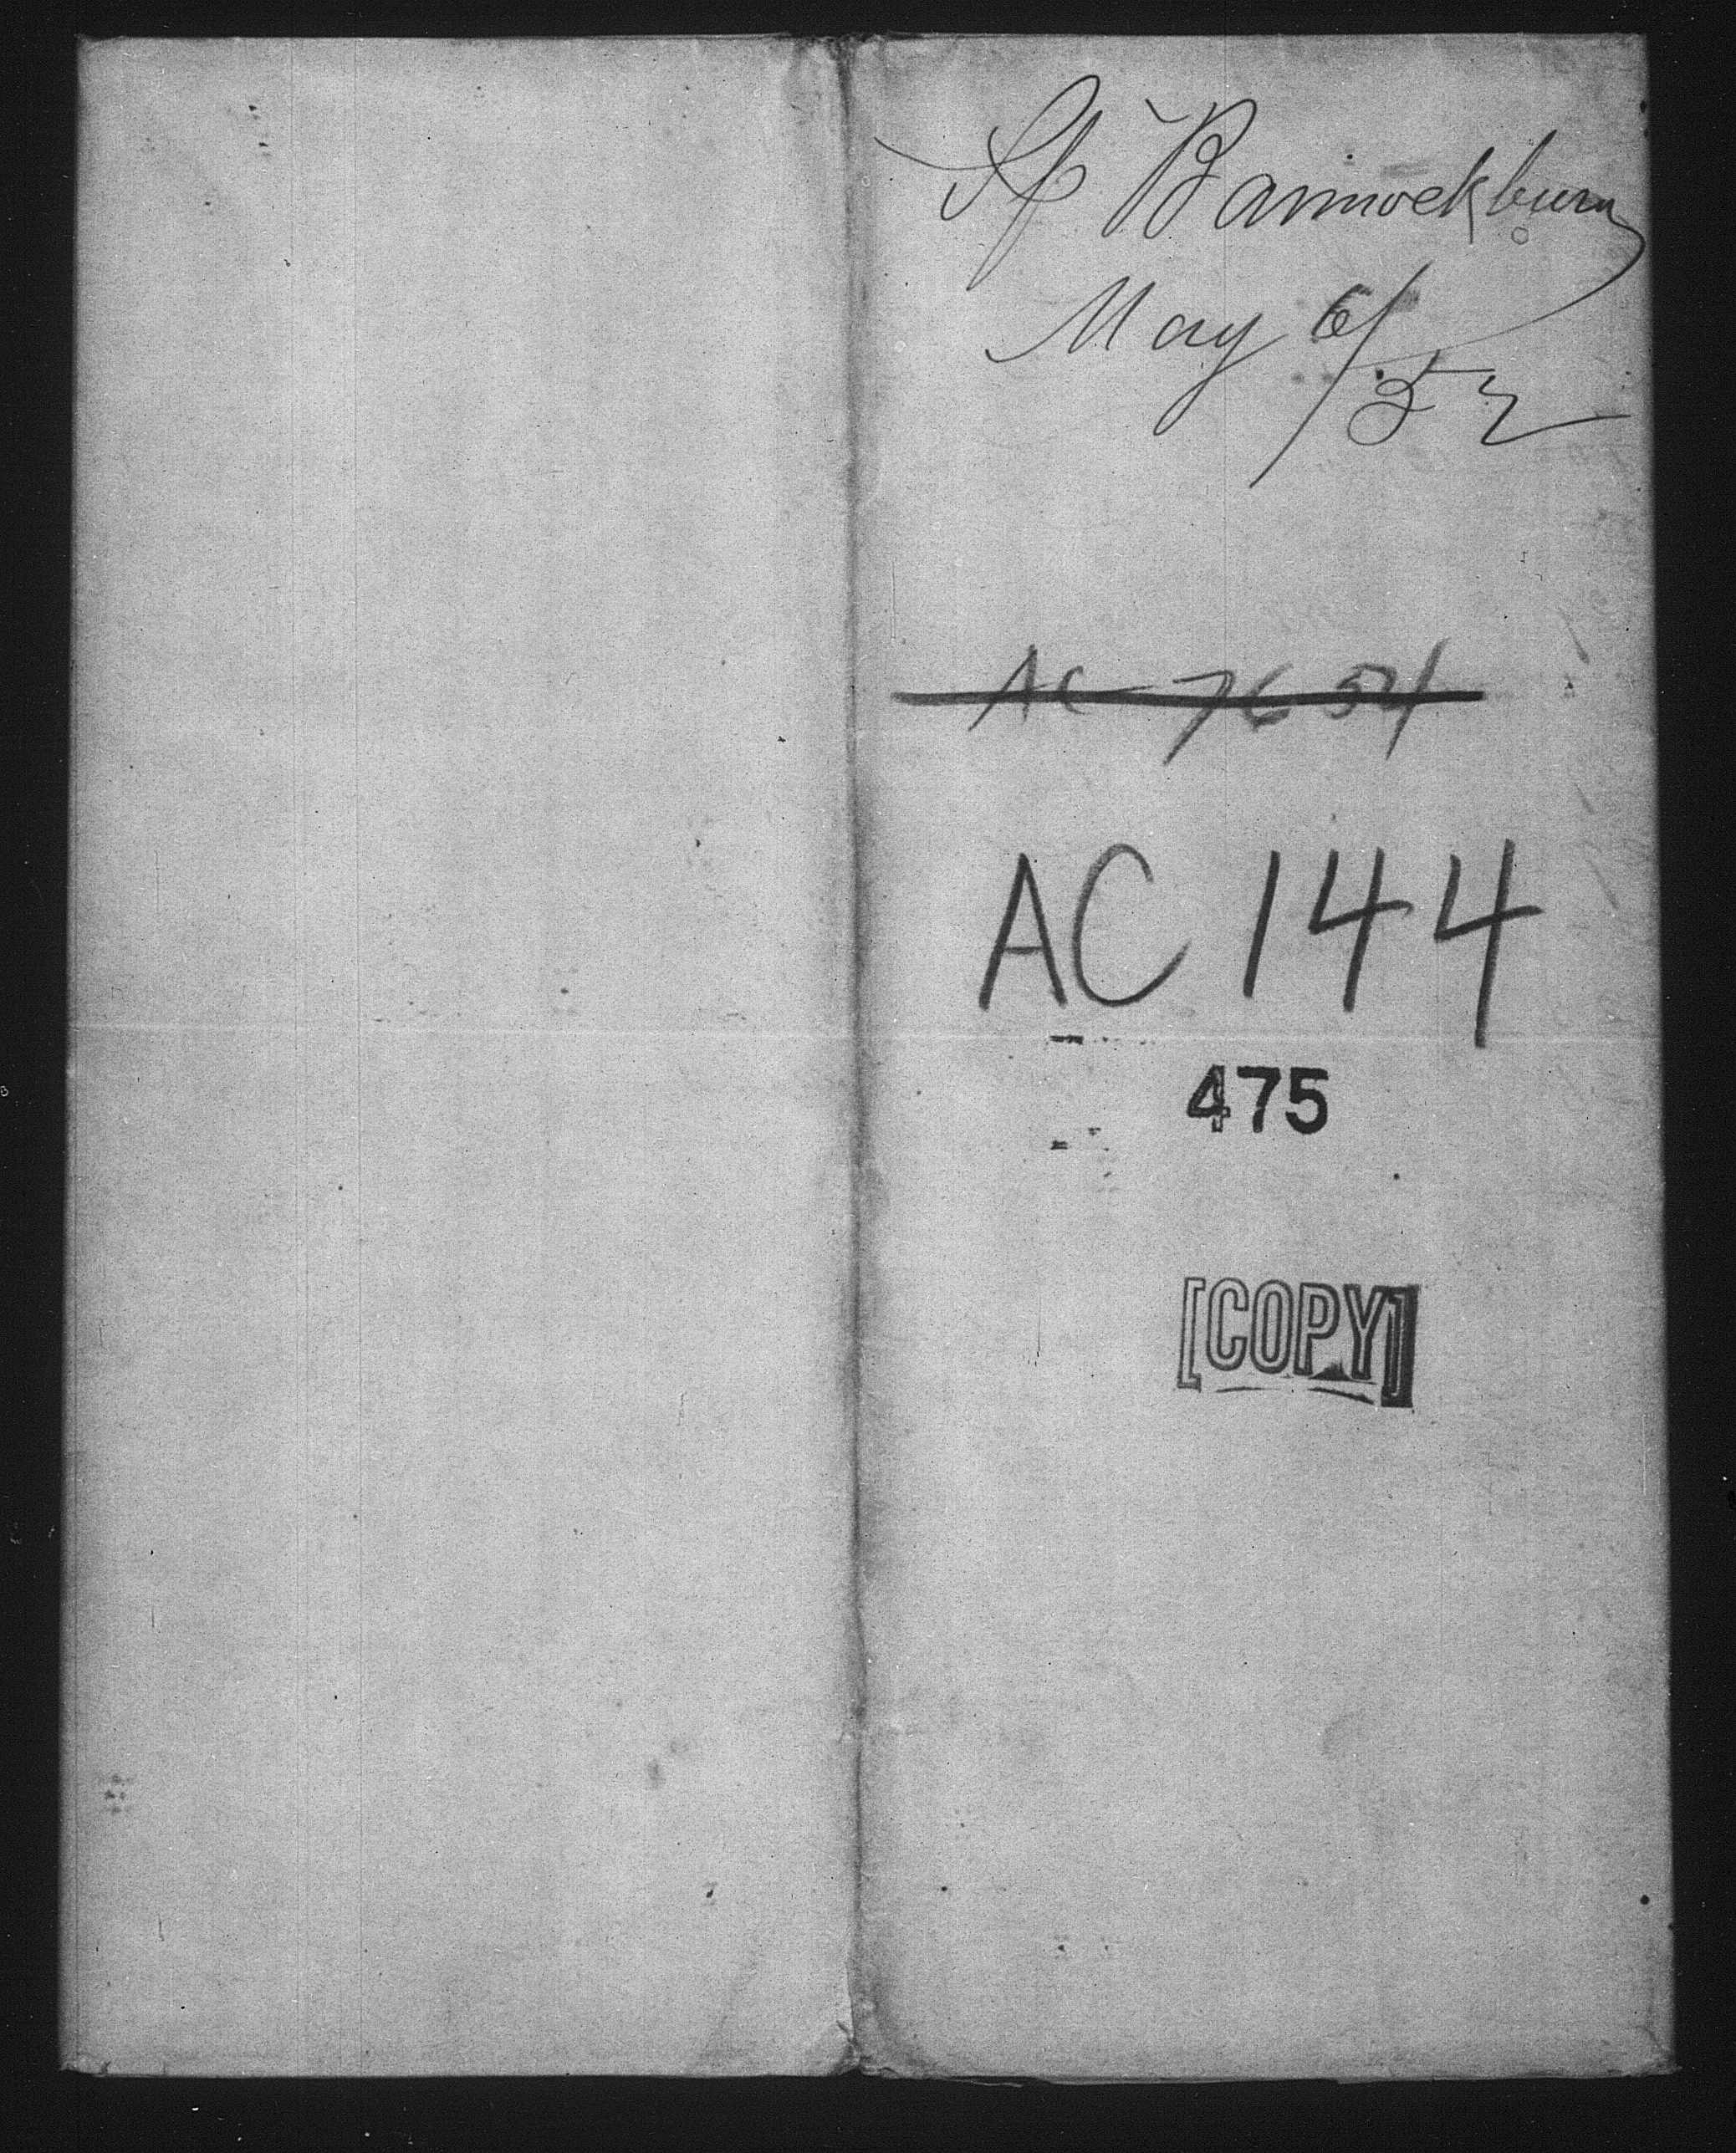 Sp Bannockburn
May 6/52
AC 7654
AC 144
475
[COPY]